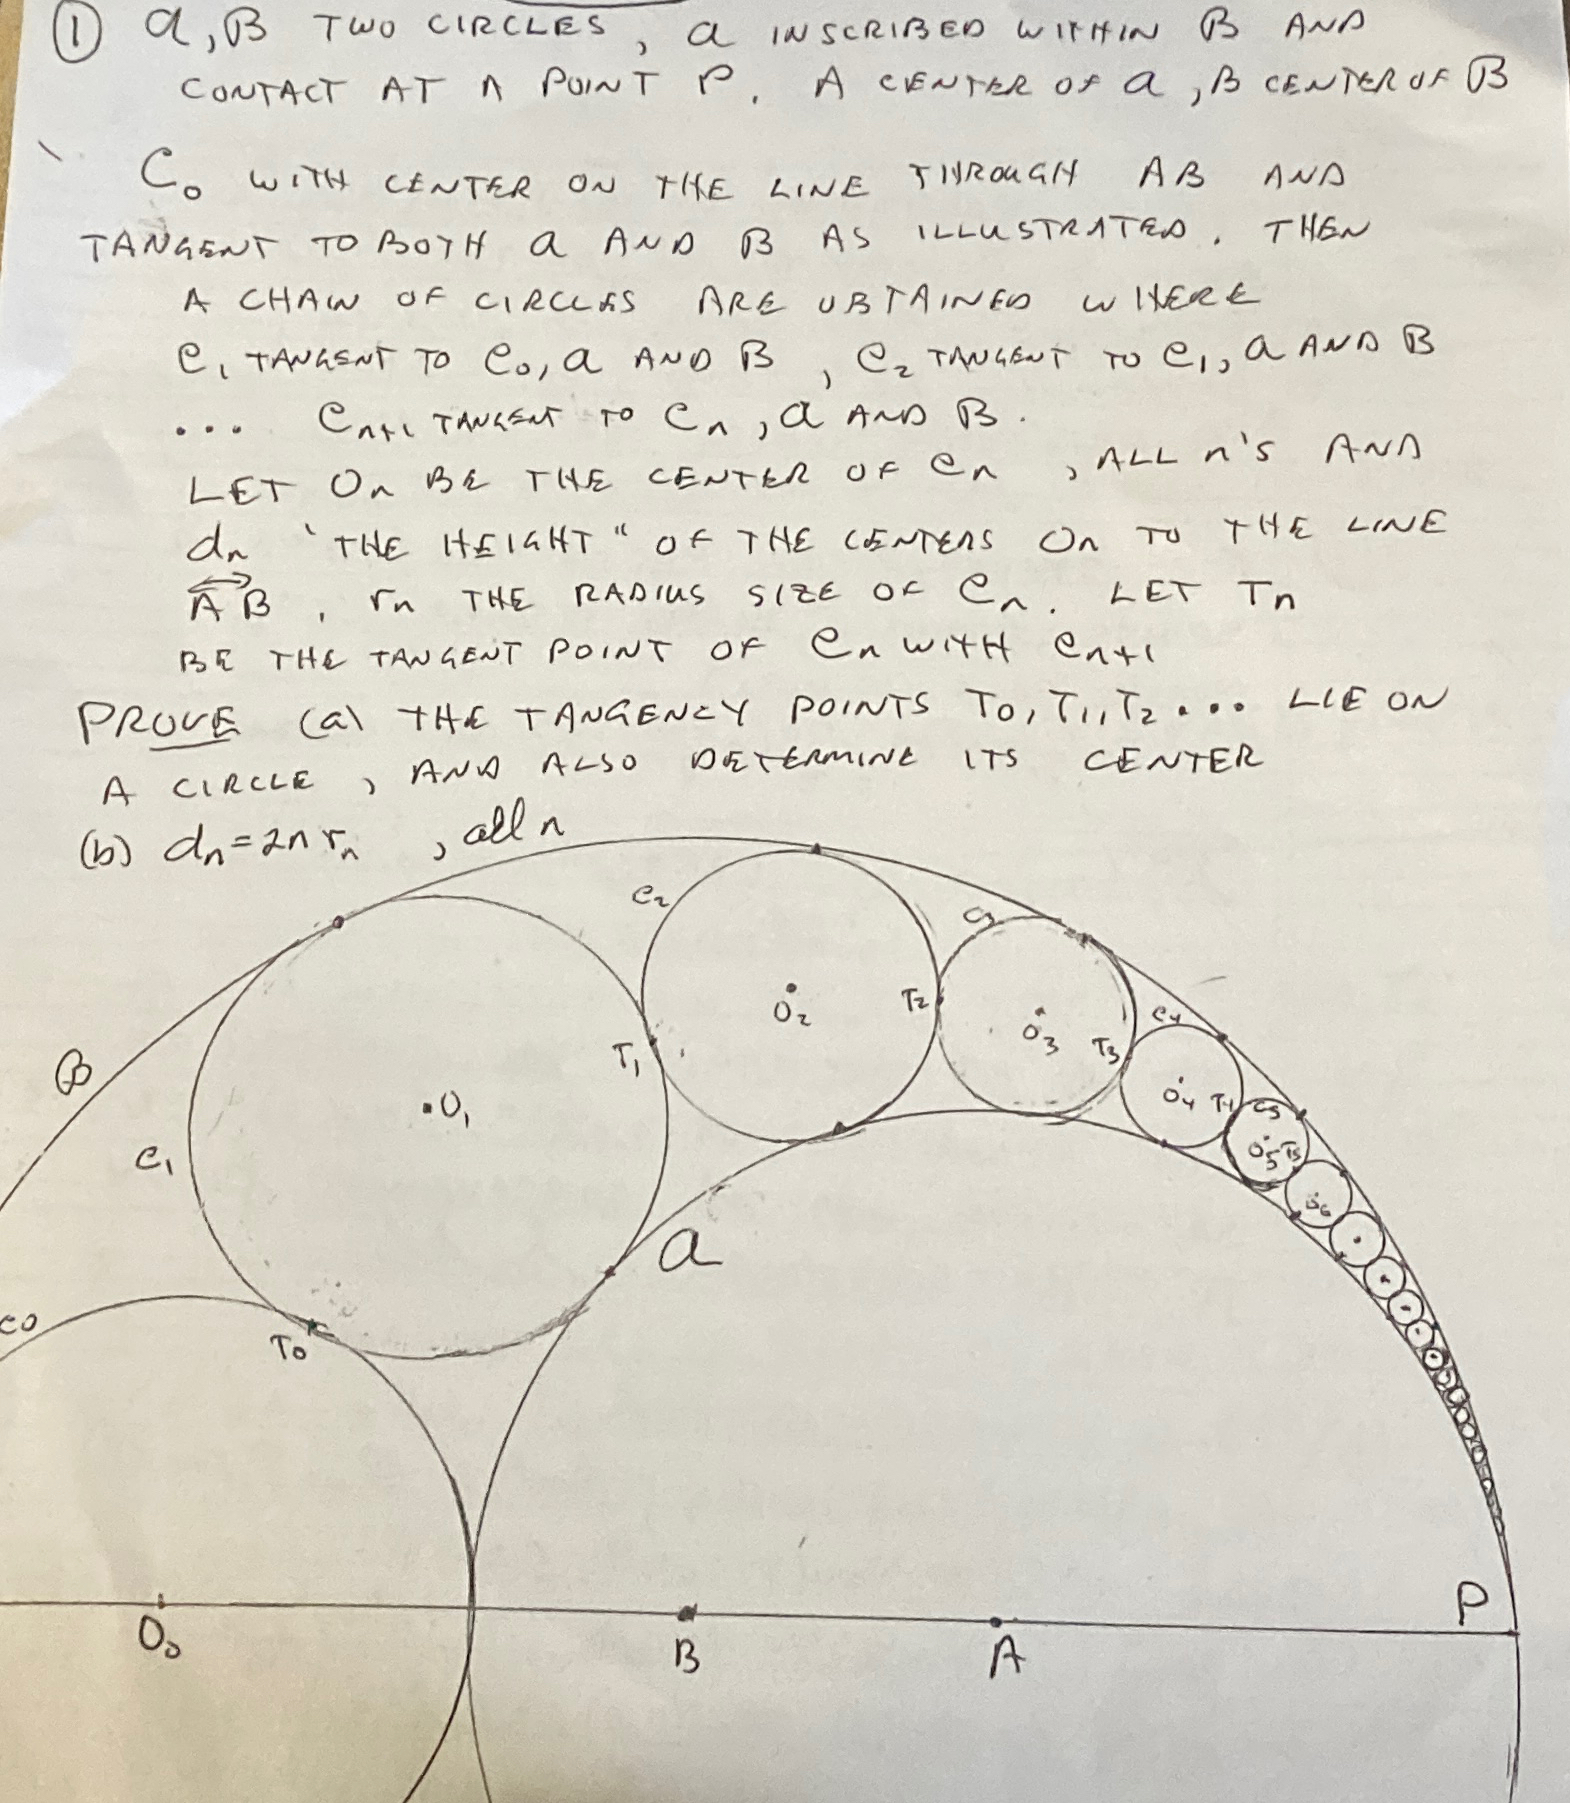 ① a, B TWO CIRCLES, a INSCRIBED WITHIN B AND
CONTACT AT A POINT P. A CENTER OF a, B CENTER OF B
C₀ WITH CENTER ON THE LINE THROUGH AB AND
TANGENT TO BOTH a AND B AS ILLUSTRATED. THEN
A CHAIN OF CIRCLES ARE OBTAINED WHERE
C₁ TANGENT TO C₀, a AND B, C₂ TANGENT TO C₁, a AND B
... Cₙ₊₁ TANGENT TO Cₙ, a AND B.
LET Oₙ BE THE CENTER OF Cₙ, ALL n'S AND
dₙ "THE HEIGHT" OF THE CENTERS Oₙ TO THE LINE
AB, rₙ THE RADIUS SIZE OF Cₙ. LET Tₙ
BE THE TANGENT POINT OF Cₙ WITH Cₙ₊₁
PROVE (a) THE TANGENCY POINTS T₀, T₁, T₂... LIE ON
A CIRCLE, AND ALSO DETERMINE ITS CENTER
(b) dₙ = 2n rₙ, all n
C₂
C₃
O₂
T₂
O₃
C₄
T₃
T₁
B
O₄
T₄
C₅
O₁
O₅
T₅
C₁
O₆
a
C₀
T₀
P
O₀
B
A